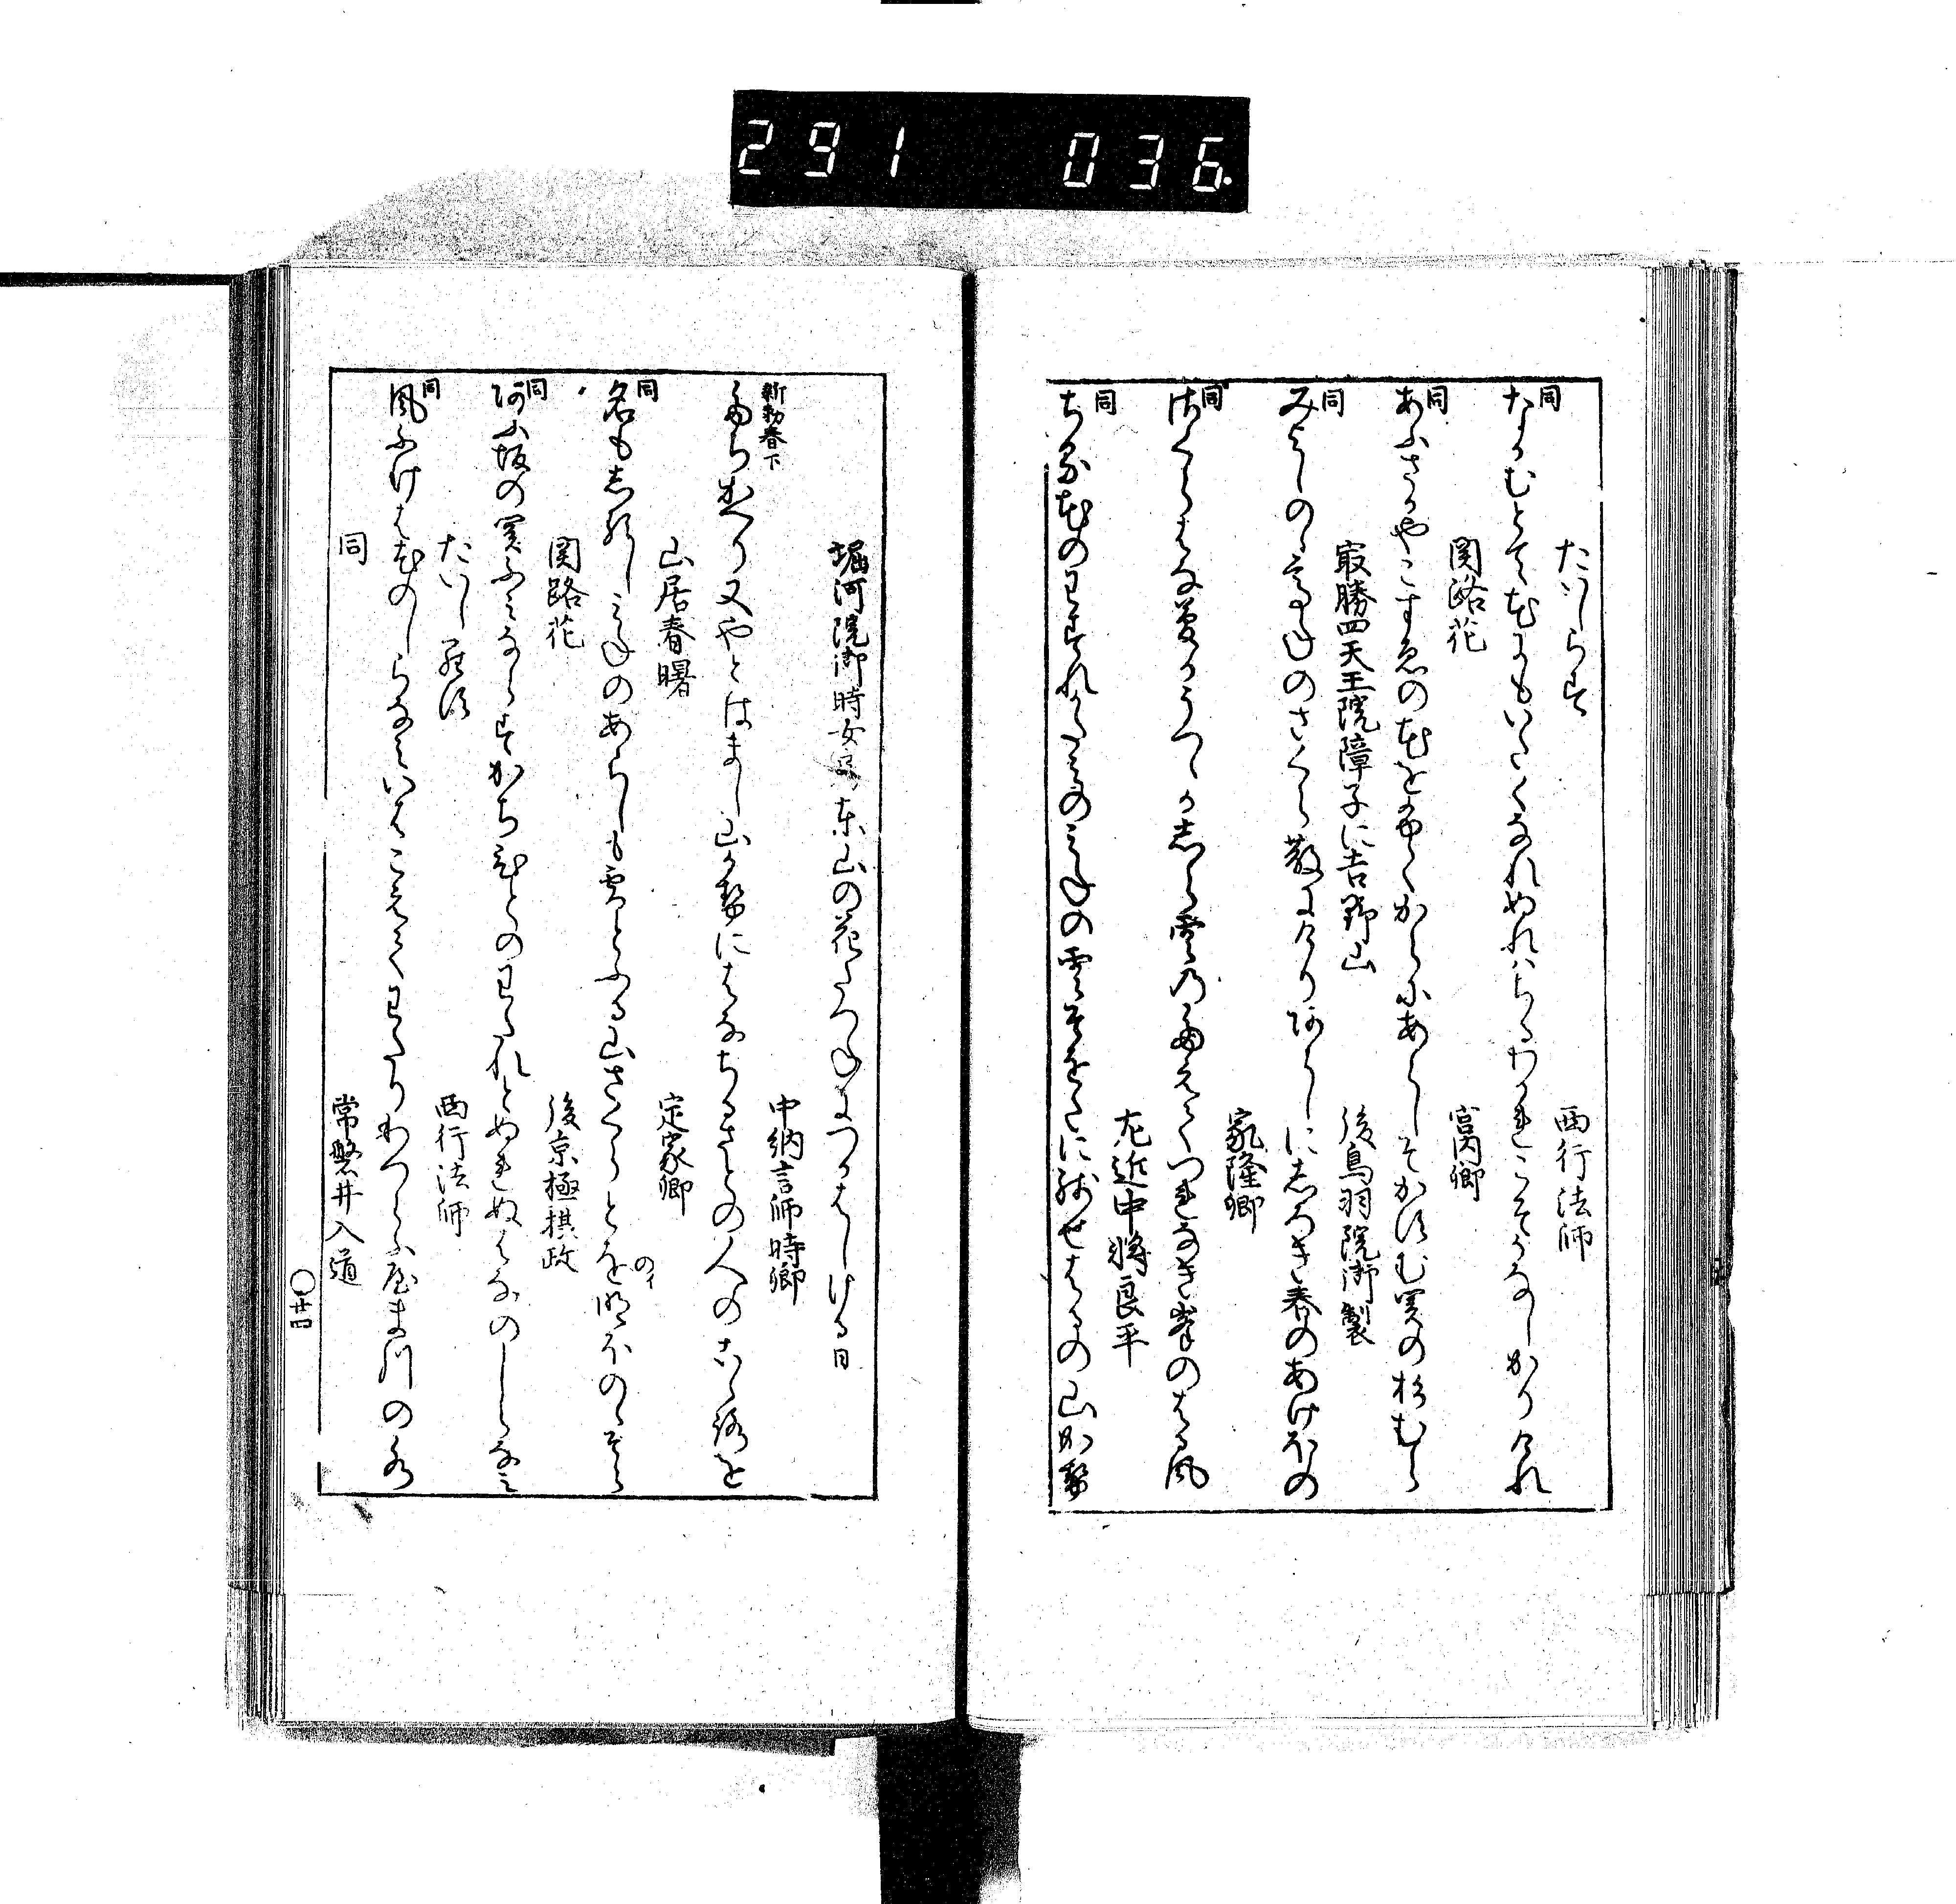 291 036.
たいしらす 西行法師
同 なかむとて花にもいたくなれぬれはちるわかれこそかなしかりけれ
関路花 宮内卿
同 あふさかやこすゑの花をふくからにあらしそかすむ関の杉むら
最勝四天王院障子に吉野山 後鳥羽院御製
同 みよしのゝ高ねのさくら散にけりあらしにしろき春のあけほの
家隆卿
同 さくらはな夢かうつゝかしら雲のたえてつれなき峯のはる風
左近中将良平
同 ちる花のわすれかたみのみねの雲そをたに残せはるの山かせ
堀河院御時女房東山の花たつねにつかはしける日
中納言師時卿
新勅春下 立ちかへり又やとはまし山かせにはなちるさとの人のこゝろを
山居春曙 定家卿
同 名もしるしみねのあらしも雪とふる山さくらとを明ほのゝそら
のイ
関路花 後京極摂政
同 あふ坂の関ふみならすかち人のわたれとぬれぬはなのしらなみ
たいしらす 西行法師
同 風ふけは花のしらなみいはこえてわたりわつらふ山川の水
同 常磐井入道
〇廿四